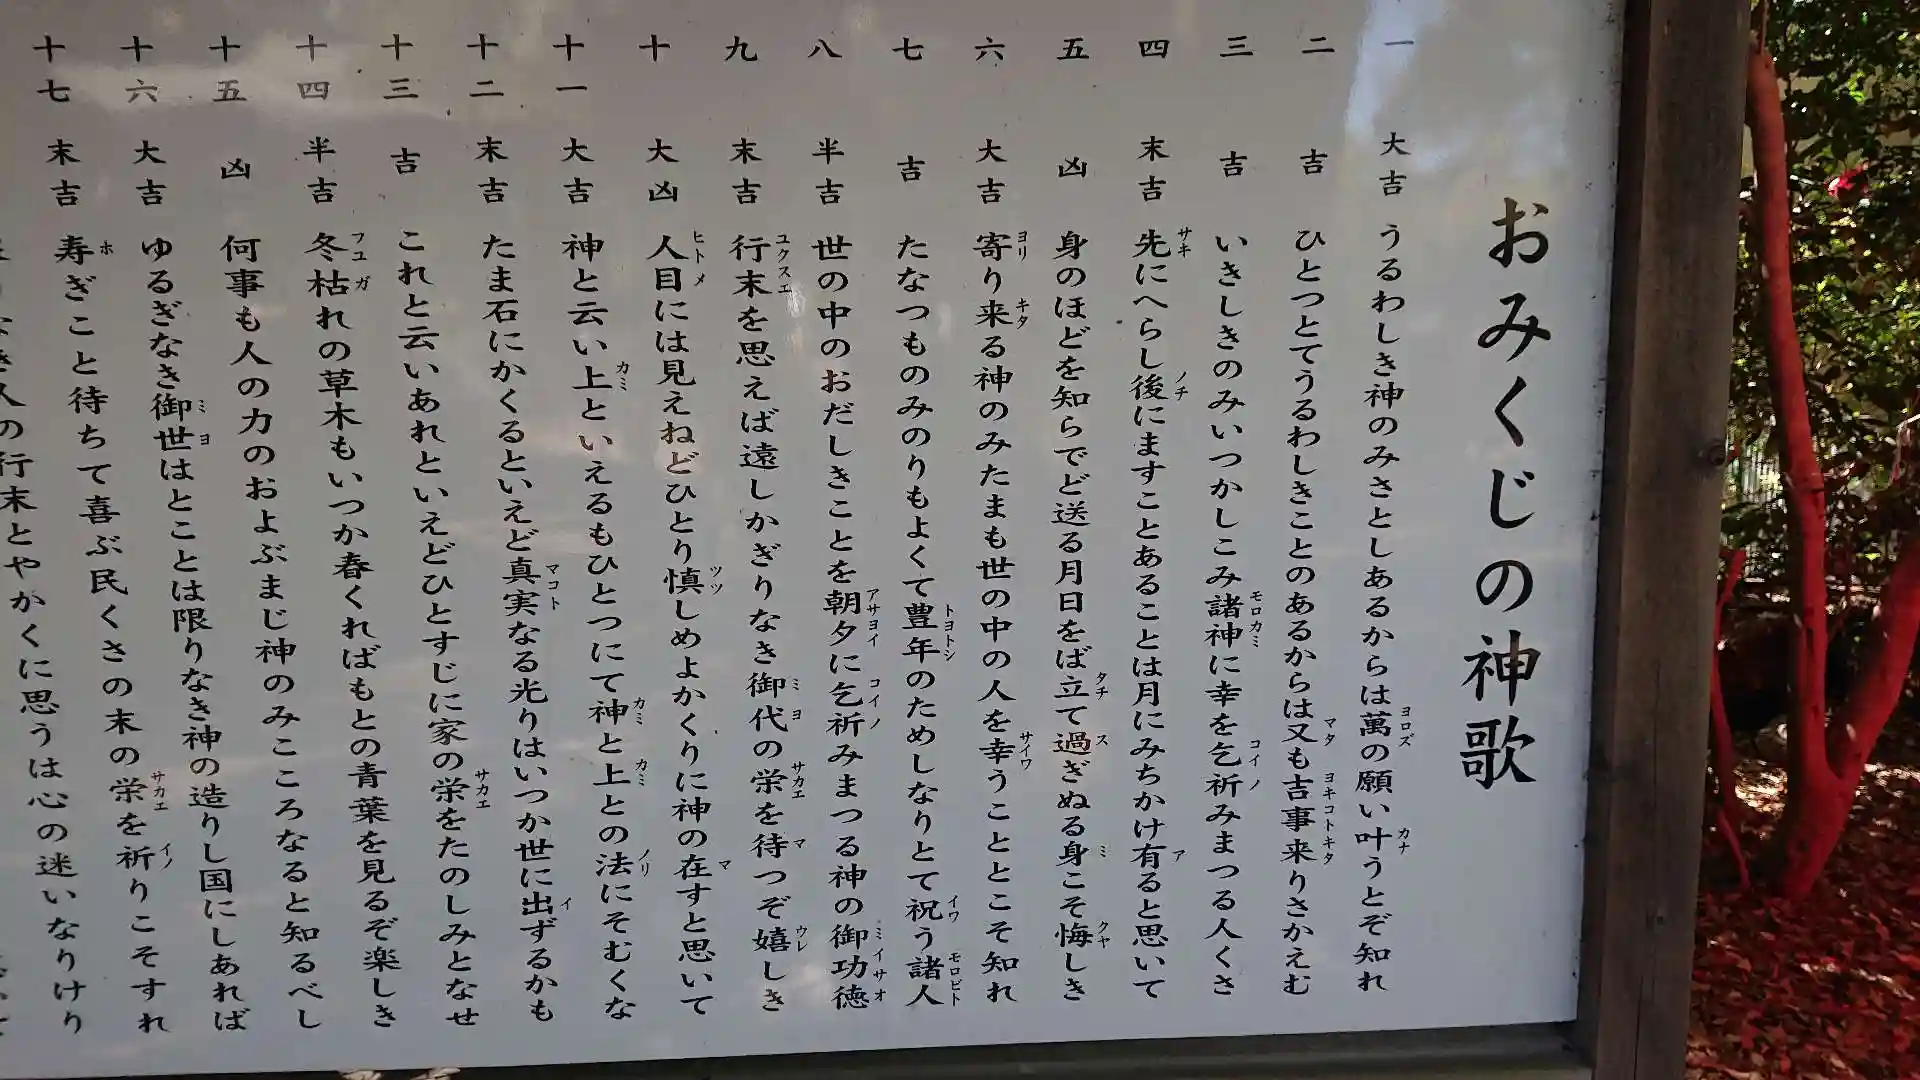 おみくじの神歌
一 大吉 うるわしき神のみさとしあるからは萬の願い叶うとぞ知れ
二 吉 ひとつとてうるわしきことのあるからは又も吉事来りさかえむ
三 吉 いきしきのみいつかしこみ諸神に幸を乞祈みまつる人くさ
四 末吉 先にへらし後にますことあることは月にみちかけ有ると思いて
五 凶 身のほどを知らでど送る月日をば立て過ぎぬる身こそ悔しき
六 大吉 寄り来る神のみたまも世の中の人を幸うこととこそ知れ
七 吉 たなつものみのりもよくて豊年のためしなりとて祝う諸人
八 半吉 世の中のおだしきことを朝夕に乞祈みまつる神の御功徳
九 末吉 行末を思えば遠しかぎりなき御代の栄を待つぞ嬉しき
十 大凶 人目には見えねどひとり慎しめよかくりに神の在すと思いて
十一 大吉 神と云い上といえるもひとつにて神と上との法にそむくな
十二 末吉 たま石にかくるといえど真実なる光りはいつか世に出ずるかも
十三 吉 これと云いあれといえどひとすじに家の栄をたのしみとなせ
十四 半吉 冬枯れの草木もいつか春くればもとの青葉を見るぞ楽しき
十五 凶 何事も人の力のおよぶまじ神のみこころなると知るべし
十六 大吉 ゆるぎなき御世はとことは限りなき神の造りし国にしあれば
十七 末吉 寿ぎこと待ちて喜ぶ民くさの末の栄を祈りこそすれ
なき人の行末とやかくに思うは心の迷いなりけり